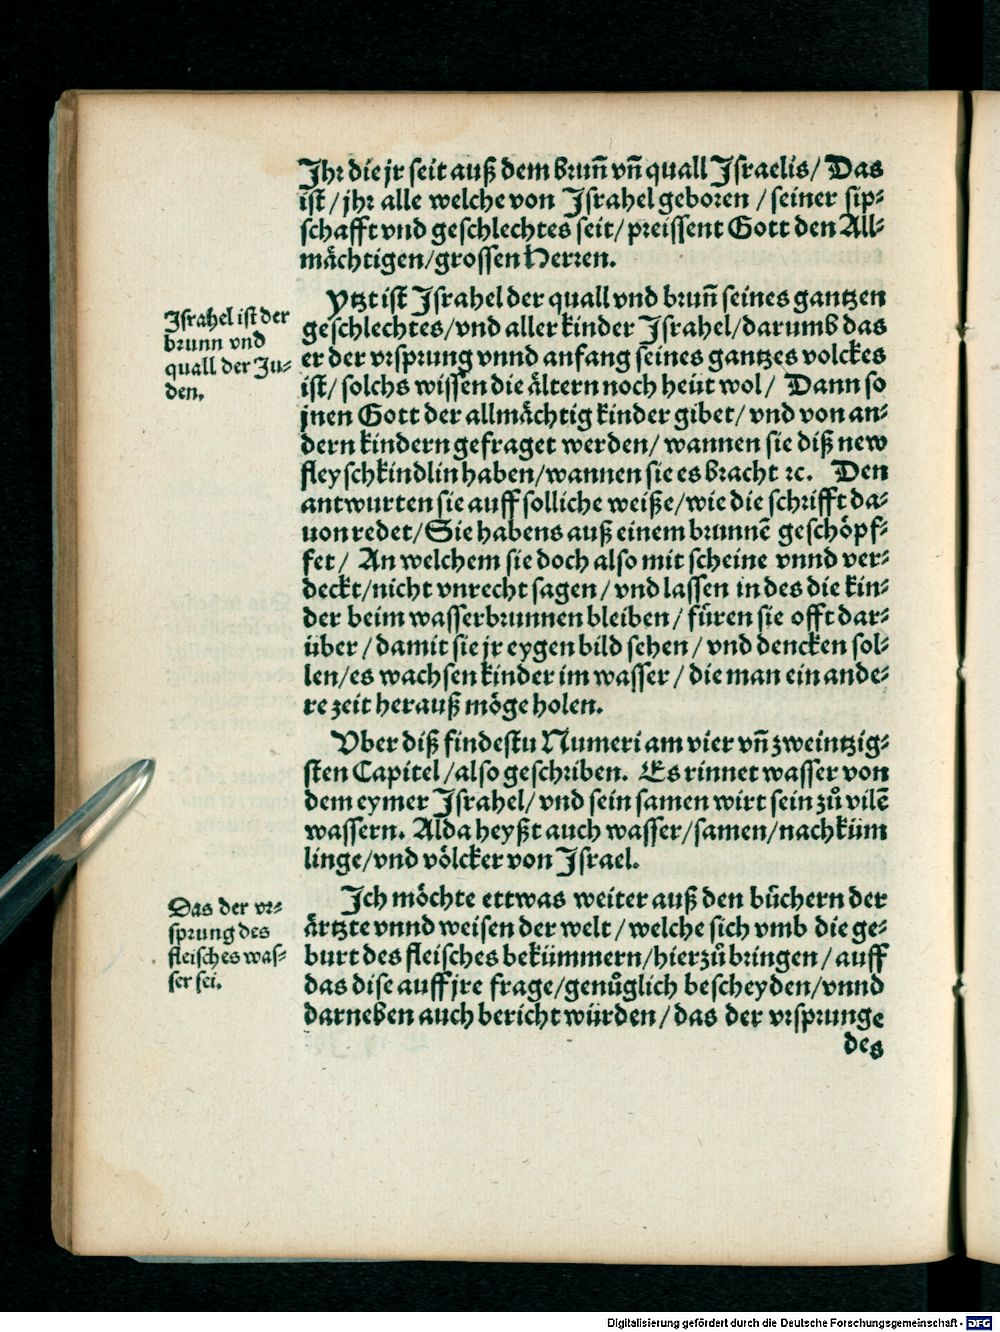 Jhr die jr seit auß dem brun̄ vn̄ quall Jsraelis/ Das
ist/ jhr alle welche von Jsrahel geboren/ seiner sip⸗
schafft vnd geschlechtes seit/ preissent Gott den All⸗
mächtigen/ grossen Herren.
Ytzt ist Jsrahel der quall vnd brun̄ seines gantzen
geschlechtes/ vnd aller kinder Jsrahel/ darumb das
er der vrsprung vnnd anfang seines gantzes volckes
ist/ solchs wissen die ältern noch heüt wol/ Dann so
jnen Gott der allmächtig kinder gibet/ vnd von an⸗
dern kindern gefraget werden/ wannen sie diß new
fleyschkindlin haben/ wannen sie es bracht ꝛc. Den
antwurten sie auff solliche weiße/ wie die schrifft da⸗
uon redet/ Sie habens auß einem brunnē geschöpf⸗
fet/ An welchem sie doch also mit scheine vnnd ver⸗
deckt/ nicht vnrecht sagen/ vnd lassen in des die kin⸗
der beim wasserbrunnen bleiben/ füren sie offt dar⸗
über/ damit sie jr eygen bild sehen/ vnd dencken sol⸗
len/ es wachsen kinder im wasser/ die man ein ande⸗
re zeit herauß möge holen.
Vber diß findestu Numeri am vier vn̄ zweintzig⸗
sten Capitel/ also geschriben. Es rinnet wasser von
dem eymer Jsrahel/ vnd sein samen wirt sein zů vilē
wassern. Alda heyßt auch wasser/ samen/ nachküm
linge/ vnd völcker von Jsrael.
Ich möchte ettwas weiter auß den büchern der
ärtzte vnnd weisen der welt/ welche sich vmb die ge⸗
burt des fleisches bekümmern/ hierzů bringen/ auff
das dise auff jre frage/ genůglich bescheyden/ vnnd
darneben auch bericht würden/ das der vrsprunge
des
Jsrahel ist der
brunn vnd
quall der Ju⸗
den.
Das der vr⸗
sprung des
fleisches was⸗
ser sei.
Digitalisierung gefördert durch die Deutsche Forschungsgemeinschaft - DFG